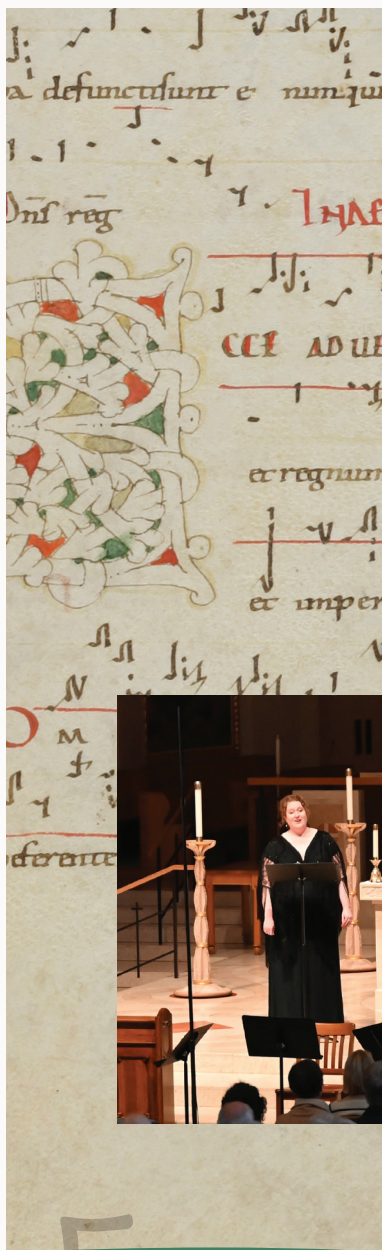 defunctisunt e numqui
Dn̄s reḡ
INAE
CCE ADUE
et regnum
et imper
O M
eferente